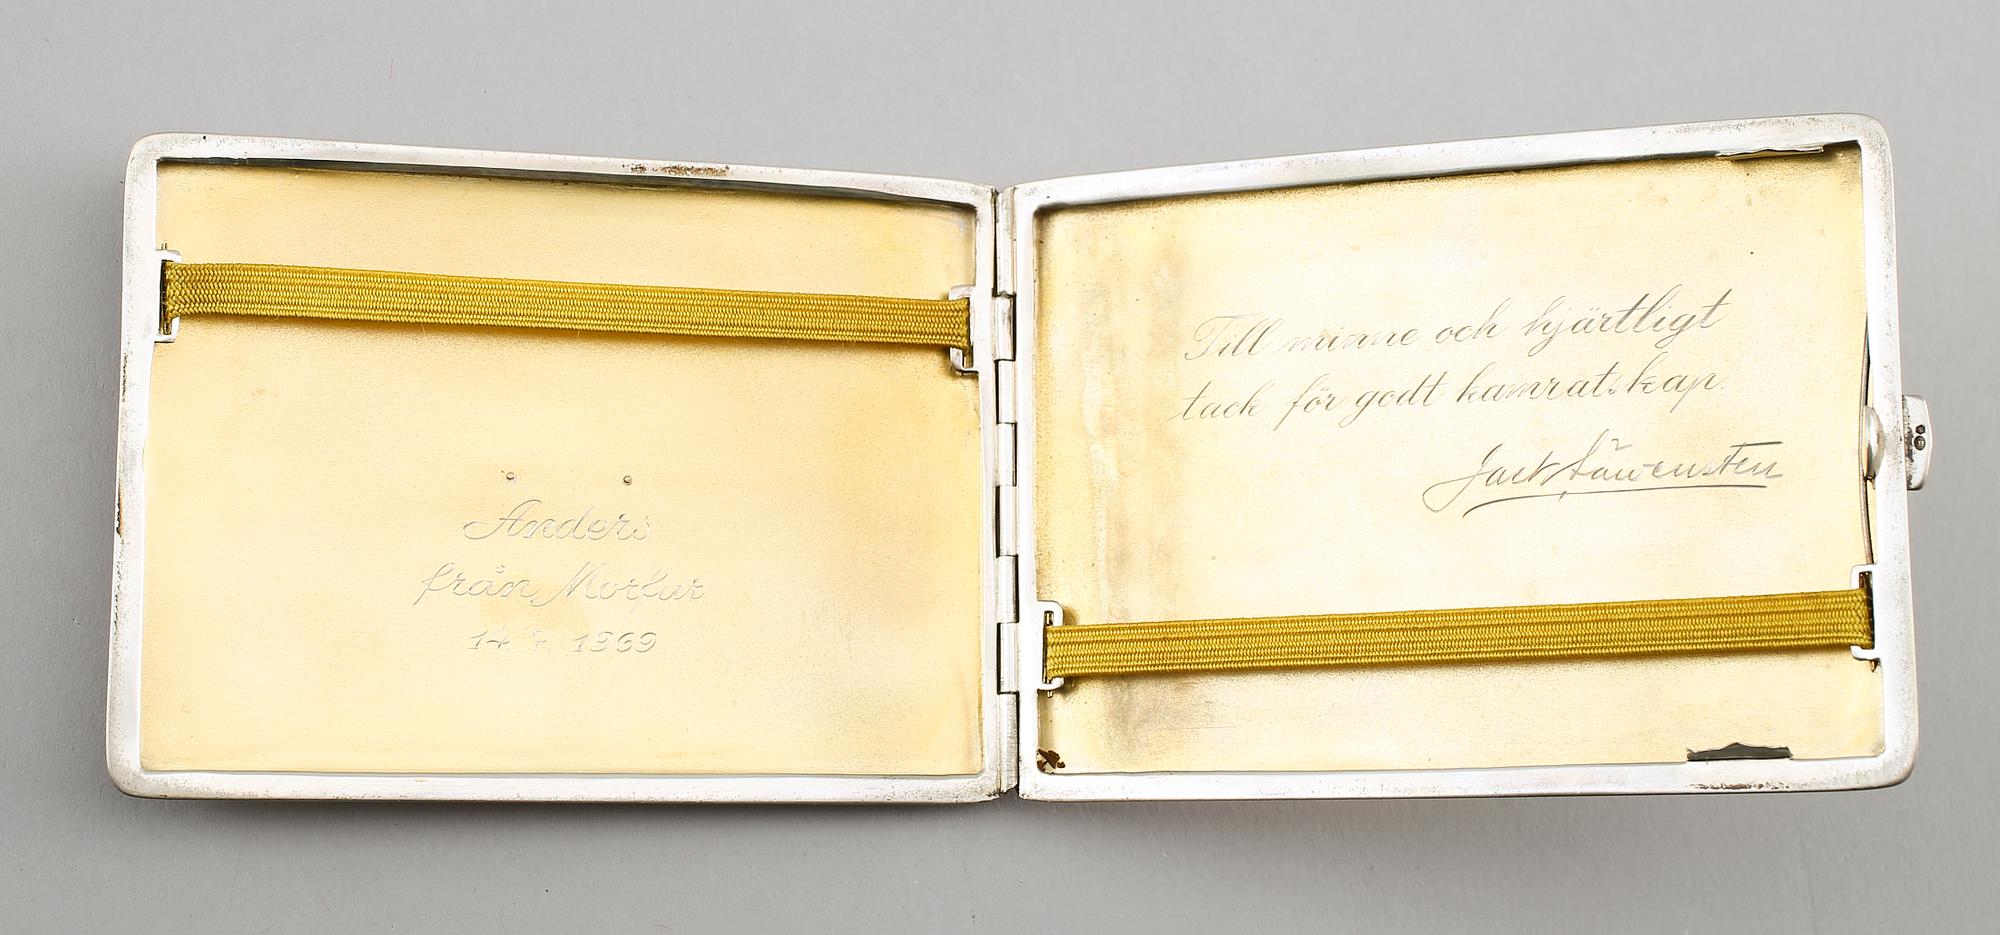 Anders
från Morfar
14 7 1969
Till minne och hjärtligt
tack för godt kamratskap.
Jack Löwensten